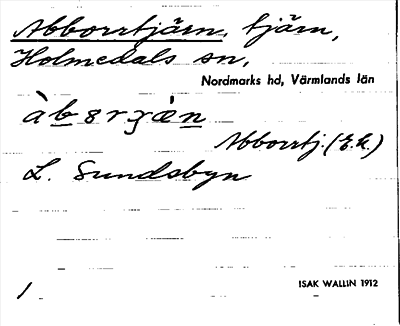 Abborrtjärn, tjärn,
Holmedals sn,
Nordmarks hd, Värmlands län
Abborrtj. (E.K.)
L. Sundsbyn
1
ISAK WALLIN 1912